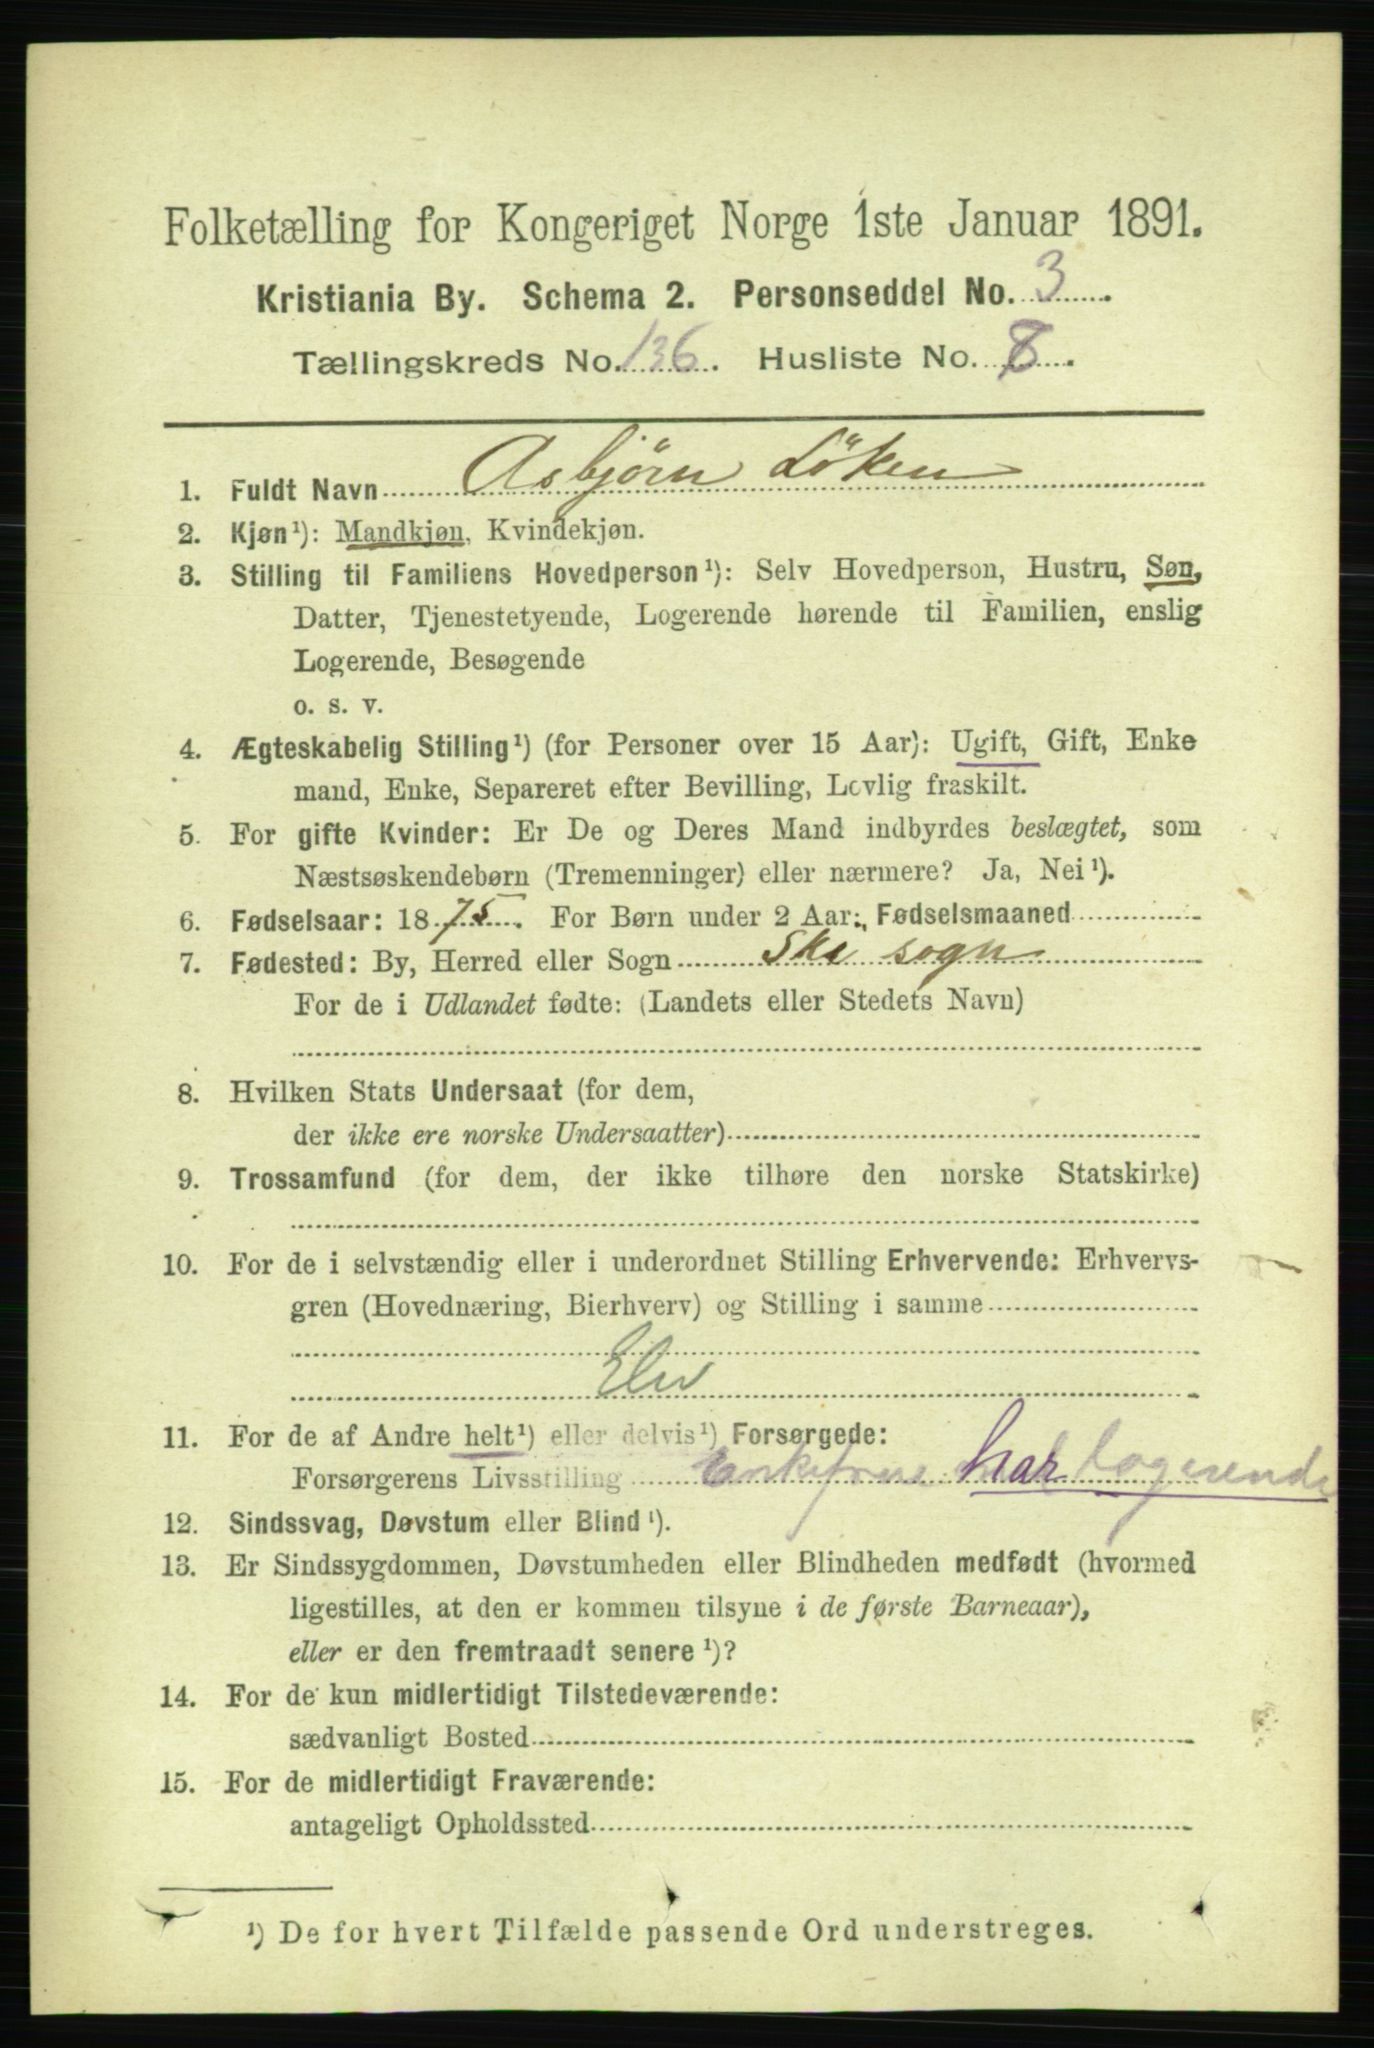 Folketælling for Kongeriget Norge 1ste Januar 1891.
Kristiania By. Schema 2. Personseddel No. 3.
Tællingskreds No. 136. Husliste No. 8.
1. Fuldt Navn Asbjörn Löken
2. Kjøn¹): Mandkjøn, Kvindekjøn.
3. Stilling til Familiens Hovedperson¹): Selv Hovedperson, Hustru, Søn,
Datter, Tjenestetyende, Logerende hørende til Familien, enslig
Logerende, Besøgende
o. s. v.
4. Ægteskabelig Stilling¹) (for Personer over 15 Aar): Ugift, Gift, Enke
mand, Enke, Separeret efter Bevilling, Lovlig fraskilt.
5. For gifte Kvinder: Er De og Deres Mand indbyrdes beslægtet, som
Næstsøskendebørn (Tremenninger) eller nærmere? Ja, Nei¹).
6. Fødselsaar: 1875. For Børn under 2 Aar: Fødselsmaaned
7. Fødested: By, Herred eller Sogn Ske sogn
For de i Udlandet fødte: (Landets eller Stedets Navn)
8. Hvilken Stats Undersaat (for dem,
der ikke ere norske Undersaatter)
9. Trossamfund (for dem, der ikke tilhøre den norske Statskirke)
10. For de i selvstændig eller i underordnet Stilling Erhvervende: Erhvervs-
gren (Hovednæring, Bierhverv) og Stilling i samme
Elev
11. For de af Andre helt¹) eller delvis¹) Forsørgede:
Forsørgerens Livsstilling Enkefrue har logerende
12. Sindssvag, Døvstum eller Blind¹).
13. Er Sindssygdommen, Døvstumheden eller Blindheden medfødt (hvormed
ligestilles, at den er kommen tilsyne i de første Barneaar),
eller er den fremtraadt senere¹)?
14. For de kun midlertidigt Tilstedeværende:
sædvanligt Bosted
15. For de midlertidigt Fraværende:
antageligt Opholdssted
¹) De for hvert Tilfælde passende Ord understreges.